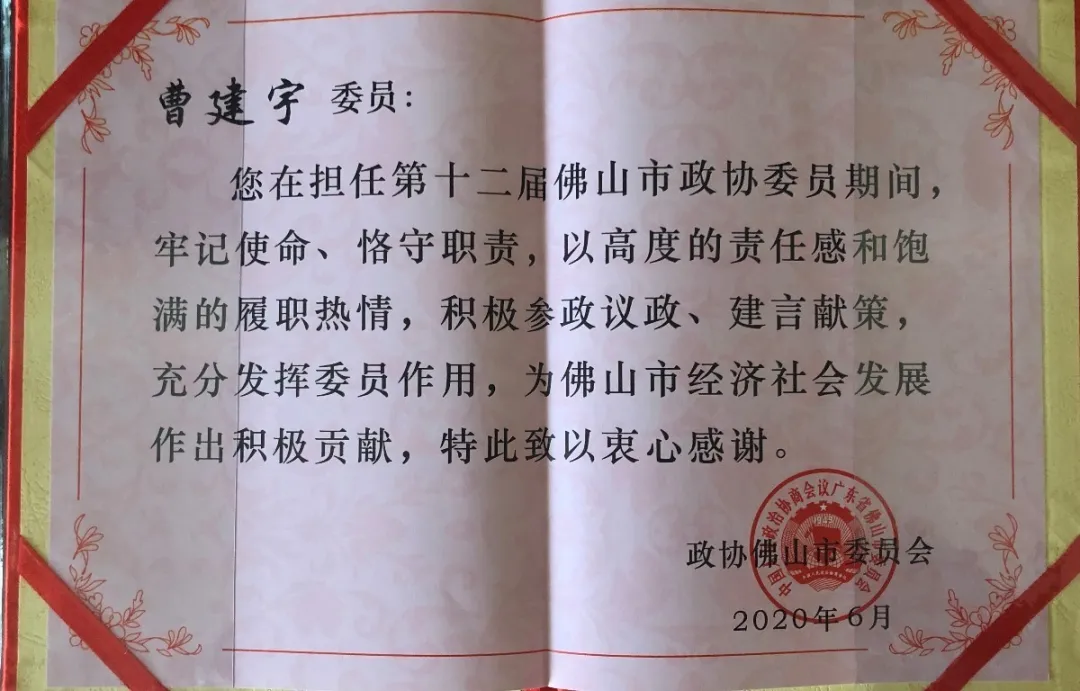 曹建宇 委员：
您在担任第十二届佛山市政协委员期间，
牢记使命、恪守职责，以高度的责任感和饱
满的履职热情，积极参政议政、建言献策，
充分发挥委员作用，为佛山市经济社会发展
作出积极贡献，特此致以衷心感谢。
中国人民政治协商会议广东省佛山市委员会
政协佛山市委员会
2020年6月